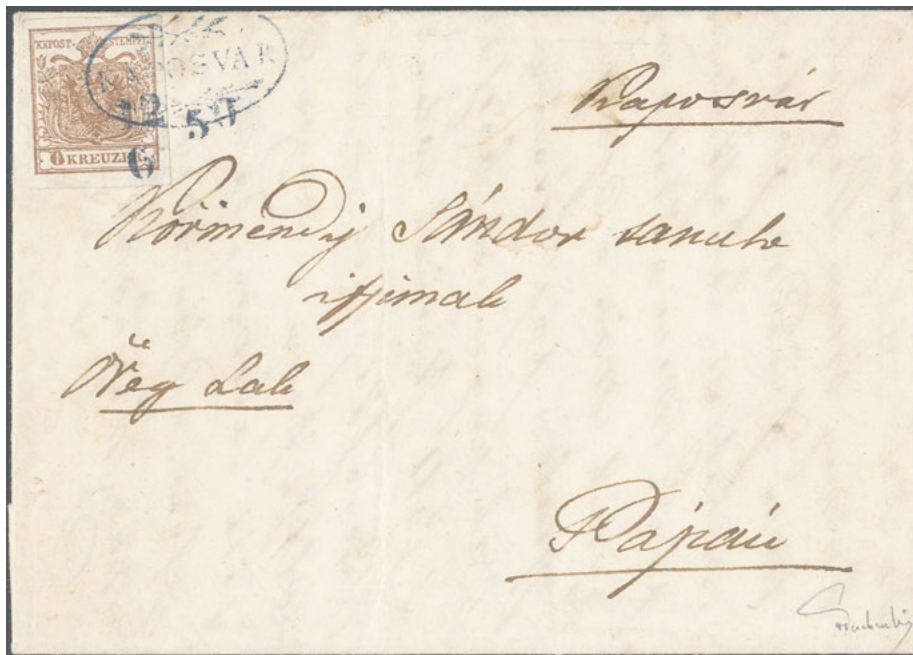 KKPOST-STEMPEL
6 KREUZER
KAPOSVAR
12 50
6
Kaposvár
Körmendy Sándor tanuló
ifjunak
Öreg Lak
Pápán